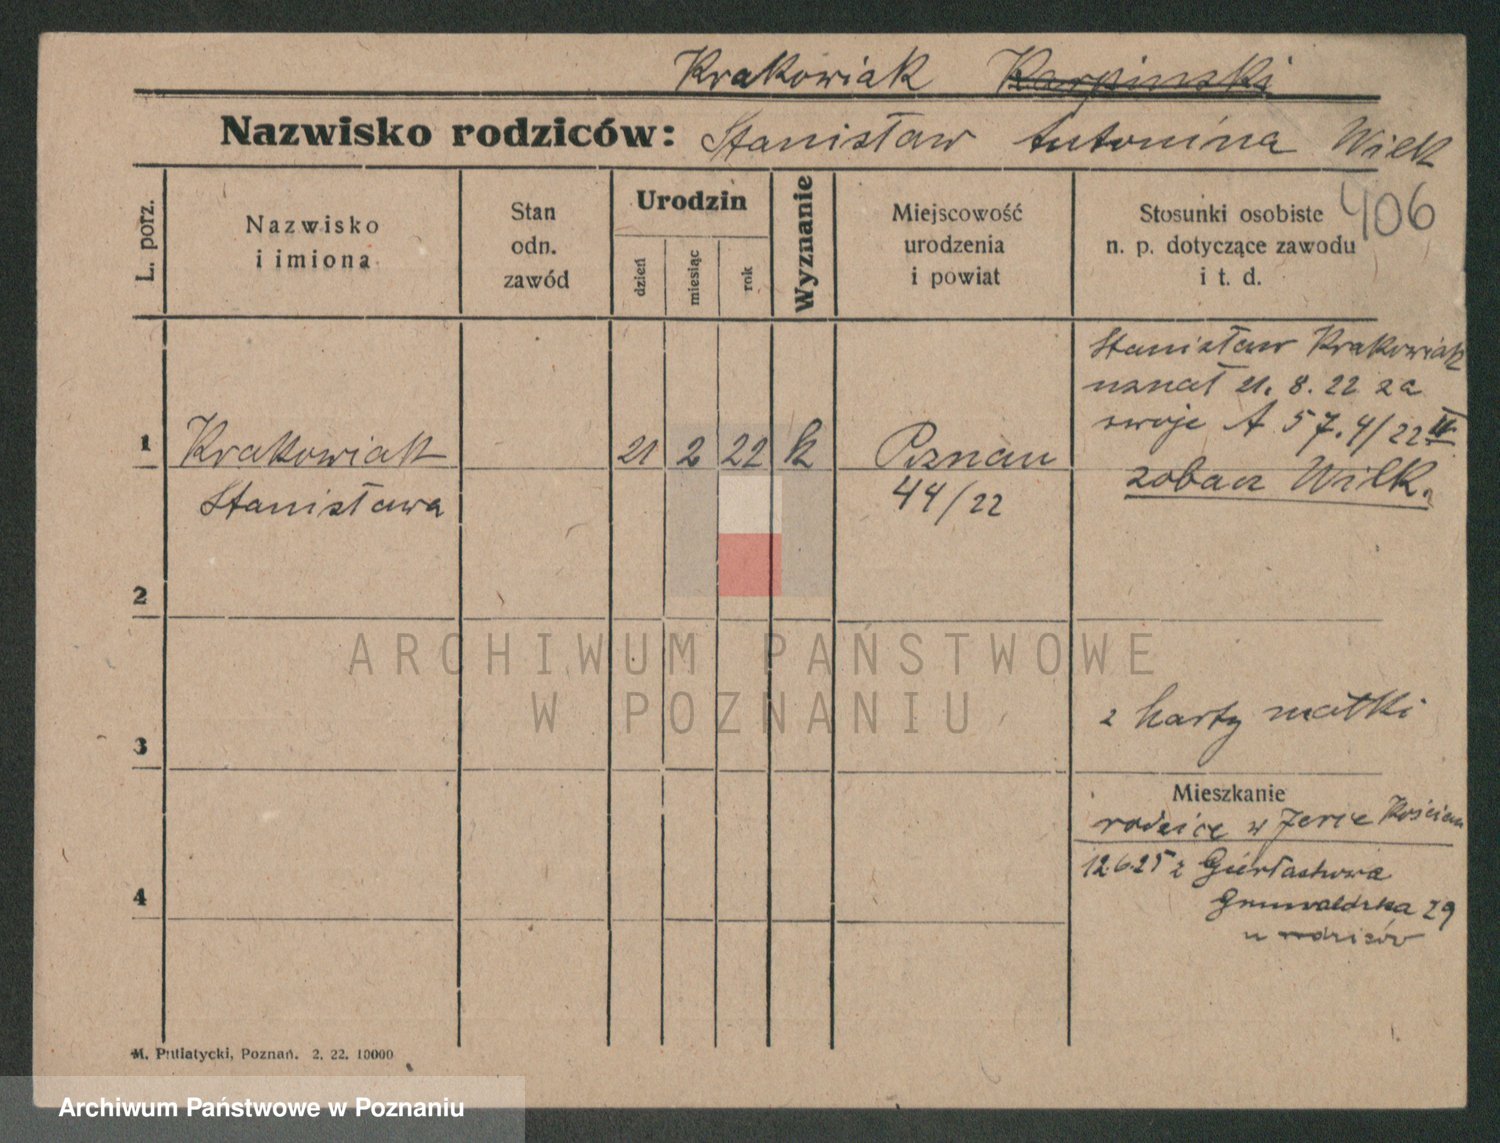 Krakowiak Karpinski
Nazwisko rodziców: Stanisław Antonina Wilk
406
L. porz.
Nazwisko
i imiona
Stan
odn.
zawód
Urodzin
dzień
miesiąc
rok
Wyznanie
Miejscowość
urodzenia
i powiat
Stosunki osobiste
n. p. dotyczące zawodu
i t. d.
Stanisław Krakowiak
uznał 21. 8. 22 za
swoje A 57.4/22 II
zobacz Wilk.
1 Krakowiak 21 2 22 k Poznan
Stanisława 44/22
2
z karty matki
3
Mieszkanie
rodzice w Jerce Kościan
12.6.25 z
4
Grunwaldzka 29
u rodziców
M. Putiatycki, Poznań. 2. 22. 10000
ARCHIWUM PAŃSTWOWE
W POZNANIU
Archiwum Państwowe w Poznaniu